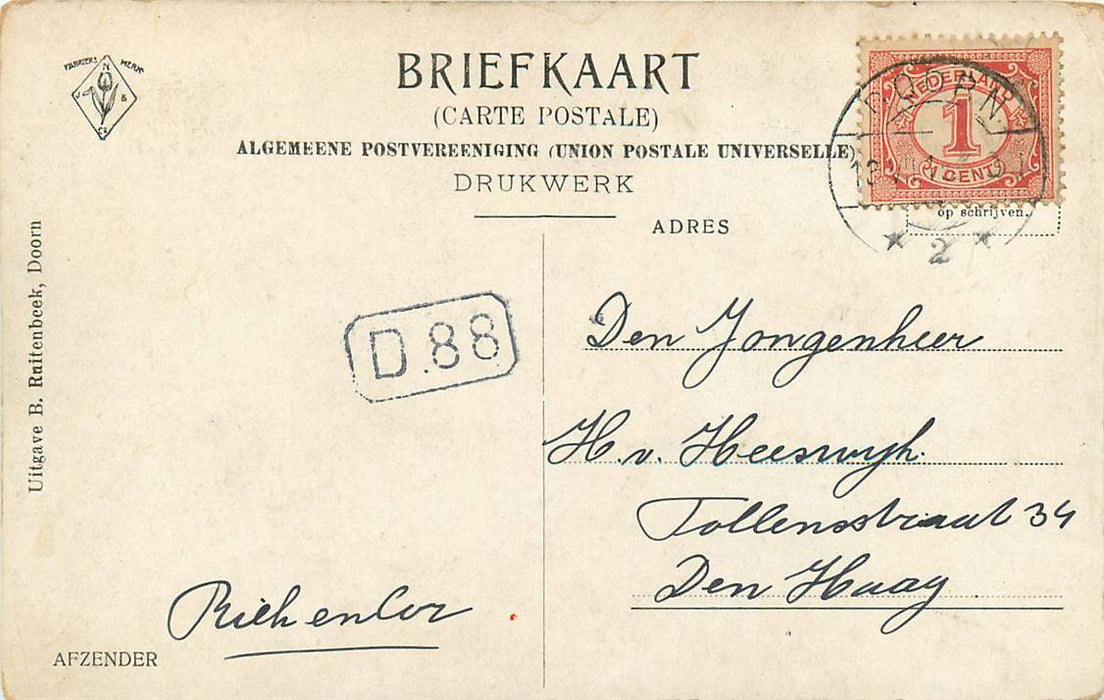 FABRIEKS MERK
N
J & 
BRIEFKAART
(CARTE POSTALE)
ALGEMEENE POSTVEREENIGING (UNION POSTALE UNIVERSELLE)
DRUKWERK
NEDERLAND
1
CENT
DOORN
2
op schrijven.
ADRES
Uitgave B. Ruitenbeek, Doorn
D.88
Den Jongenheer
H. v. Heeswijk.
Tollensstraat 34
Den Haag
Riek en Cor
AFZENDER